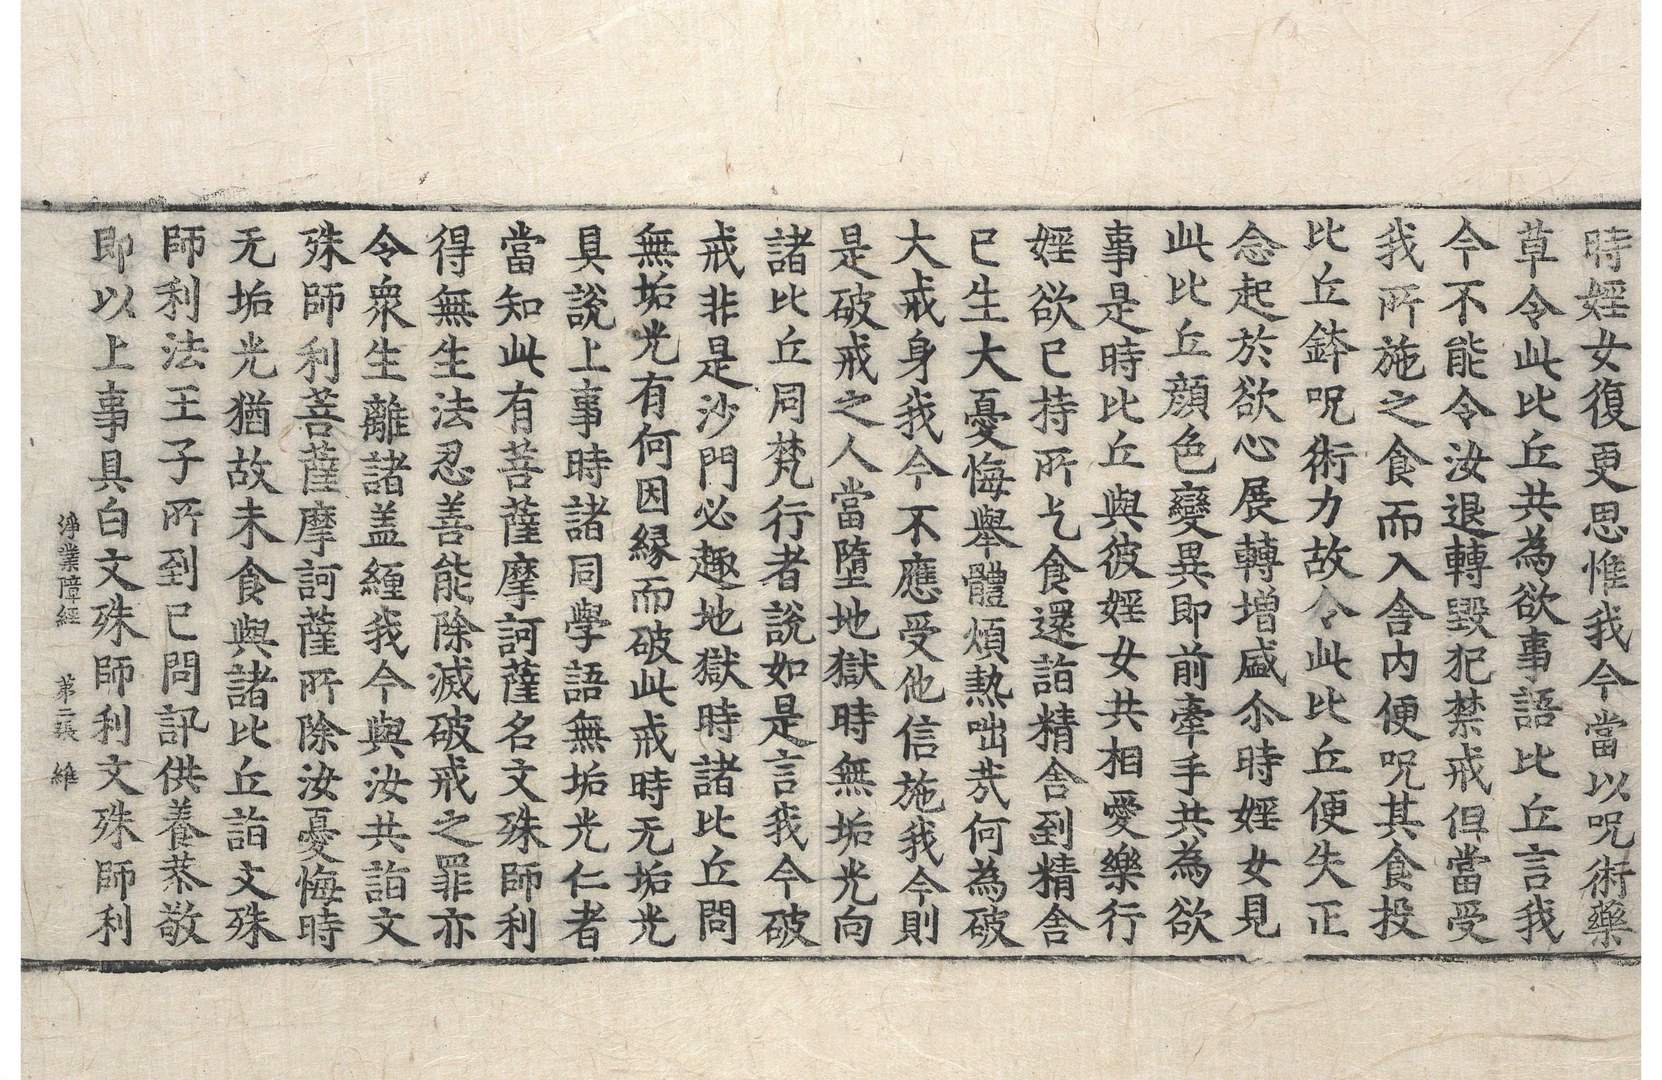 時婬女復更思惟我今當以呪術藥
草令此比丘共為欲事語比丘言我
今不能令汝退轉毀犯禁戒但當受
我所施之食而入舍内便呪其食投
比丘鉢呪術力故令此比丘便失正
念起於欲心展轉增盛尒時婬女見
此比丘顔色變異即前牽手共為欲
事是時比丘與彼婬女共相愛樂行
婬欲已持所乞食還詣精舍到精舍
已生大憂悔舉體煩熱咄㢤何為破
大戒身我今不應受他信施我今則
是破戒之人當墮地獄時無垢光向
諸比丘同梵行者說如是言我今破
戒非是沙門必趣地獄時諸比丘問
無垢光有何因縁而破此戒時无垢光
具說上事時諸同學語無垢光仁者
當知此有菩薩摩訶薩名文殊師利
得無生法忍善能除滅破戒之罪亦
令衆生離諸盖纏我今與汝共詣文
殊師利菩薩摩訶薩所除汝憂悔時
无垢光猶故未食與諸比丘詣文殊
師利法王子所到已問訊供養恭敬
即以上事具白文殊師利文殊師利
淨業障經 第二張 維